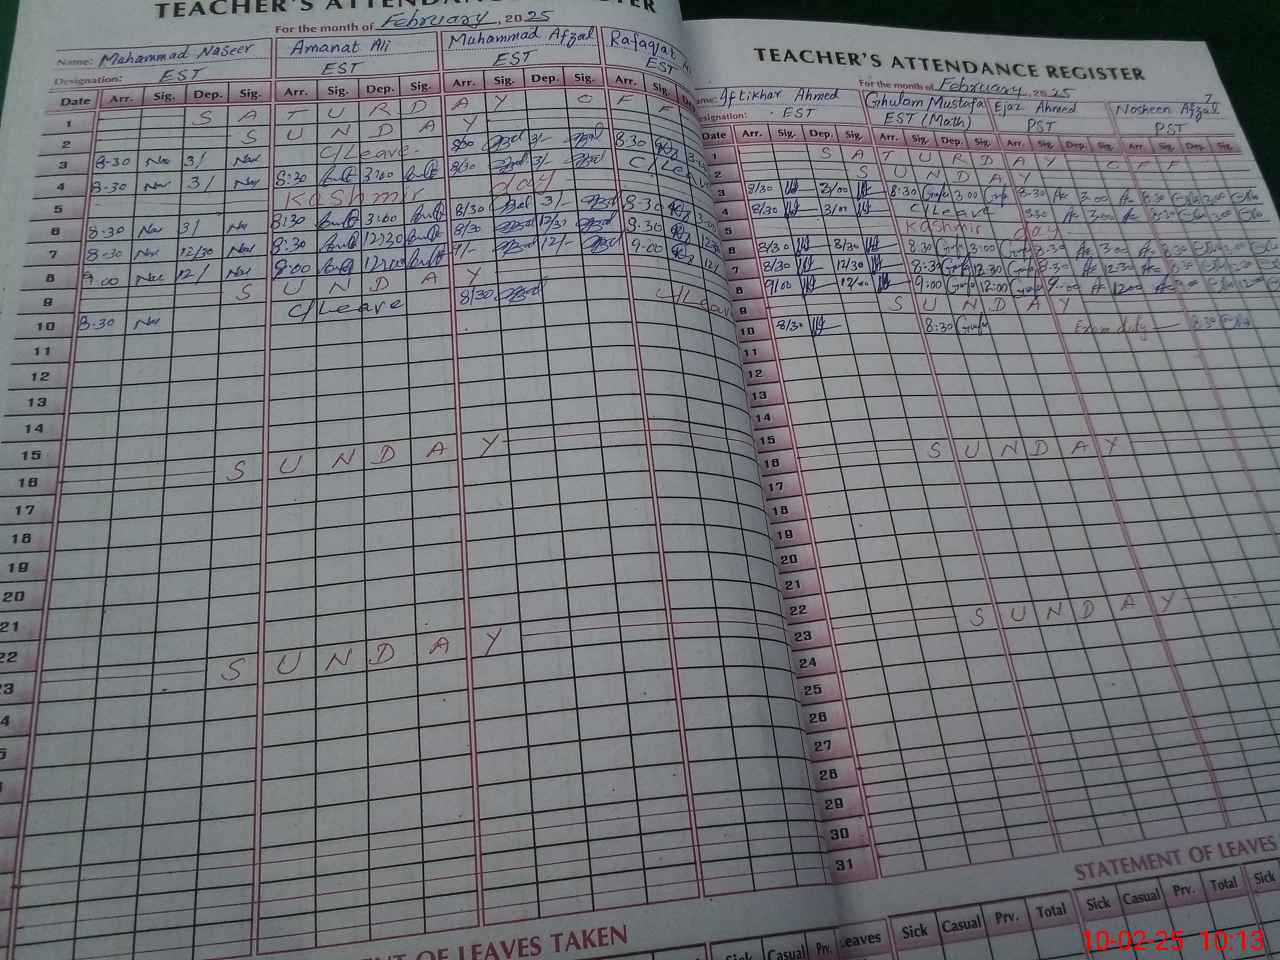 TEACHER'S ATTENDANCE REGISTER
For the month of February, 2025
Name: Muhammad Naseer Amanat Ali Muhammad Afzal Rafaqat
Designation: EST EST EST EST
Date Arr. Sig. Dep. Sig. Arr. Sig. Dep. Sig. Arr. Sig. Dep. Sig. Arr. Sig.
1 S A T U R D A Y O F F
2 S U N D A Y
3 8-30 Nas 3/ Nas C/Leave. 8/30 3/- 8.30
4 8-30 Nas 3/ Nas 8:30 3:00 8/30 3/- C/Leave
5 Kashmir day
6 8-30 Nas 3/ Nas 8:30 3:00 8/30 3/- 8.30
7 8-30 Nas 12/30 Nas 8:30 12:30 8/30 12/30 8:30
8 9.00 Nas 12/ Nas 9:00 12:00 9/- 12/- 9.00
9 S U N D A Y
10 8-30 Nas C/Leave 8/30 C/Leave
11
12
13
14
15
16 S U N D A Y
17
18
19
20
21
22
23 S U N D A Y
STATEMENT OF LEAVES TAKEN
Casual Prv.
TEACHER'S ATTENDANCE REGISTER
For the month of February, 2025
7
Name: Iftikhar Ahmed Ghulam Mustafa Ejaz Ahmed Nosheen Afzal
Designation: EST EST (Math) PST PST
Date Arr. Sig. Dep. Sig. Arr. Sig. Dep. Sig. Arr. Sig. Dep. Sig. Arr. Sig. Dep. Sig.
1 S A T U R D A Y O F F
2 S U N D A Y
3 8/30 3/00 8:30 3:00 8.30 3.00 8:30 3:00
4 8/30 3/00 C/Leave 8.30 3.00 8:30 3:00
5 Kashmir day
6 8/30 8/30 8:30 3:00 8.30 3.00 8:30
7 8/30 12/30 8:30 12:30 8.30 12.30 8:30
8 9/00 12/00 9:00 12:00 9.00 12.00 9:00
9 S U N D A Y
10 8/30 8:30 Exam duty 8:30
11
12
13
14
15
16 S U N D A Y
17
18
19
20
21
22
23 S U N D A Y
24
25
26
27
28
29
30
31
STATEMENT OF LEAVES
Leaves Sick Casual Prv. Total Sick Casual Prv. Total Sick
10-02-25 10:13